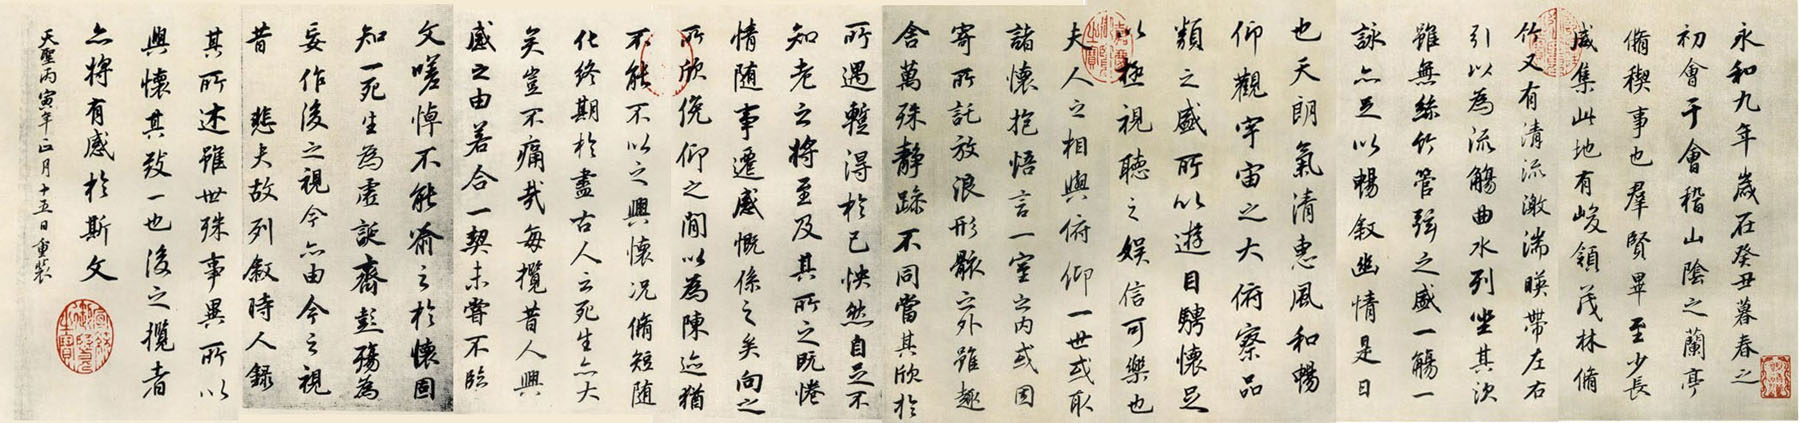 永和九年歲在癸丑暮春之
初會于會稽山陰之蘭亭
脩稧事也羣賢畢至少長
咸集此地有峻領茂林脩
竹又有清流激湍暎帶左右
引以為流觴曲水列坐其次
雖無絲竹管弦之盛一觴一
詠亦足以暢叙幽情是日
也天朗氣清惠風和暢
仰觀宇宙之大俯察品
類之盛所以遊目騁懷足
以極視聽之娛信可樂也
夫人之相與俯仰一世或取
諸懷抱悟言一室之内或因
寄所託放浪形骸之外雖趣
舍萬殊靜躁不同當其欣於
所遇蹔得於己怏然自足不
知老之將至及其所之既惓
情随事遷感慨係之矣向之
所欣俛仰之閒以為陳迹猶
不能不以之興懷況脩短随
化終期於盡古人云死生亦大
矣豈不痛哉每攬昔人興
感之由若合一契未嘗不臨
文嗟悼不能喻之於懷固
知一死生為虛誕齊彭殤為
妄作後之視今亦由今之視
昔 悲夫故列叙時人録
其所述雖世殊事異所以
興懷其致一也後之攬者
亦將有感於斯文
天聖丙寅年正月十五日重裝